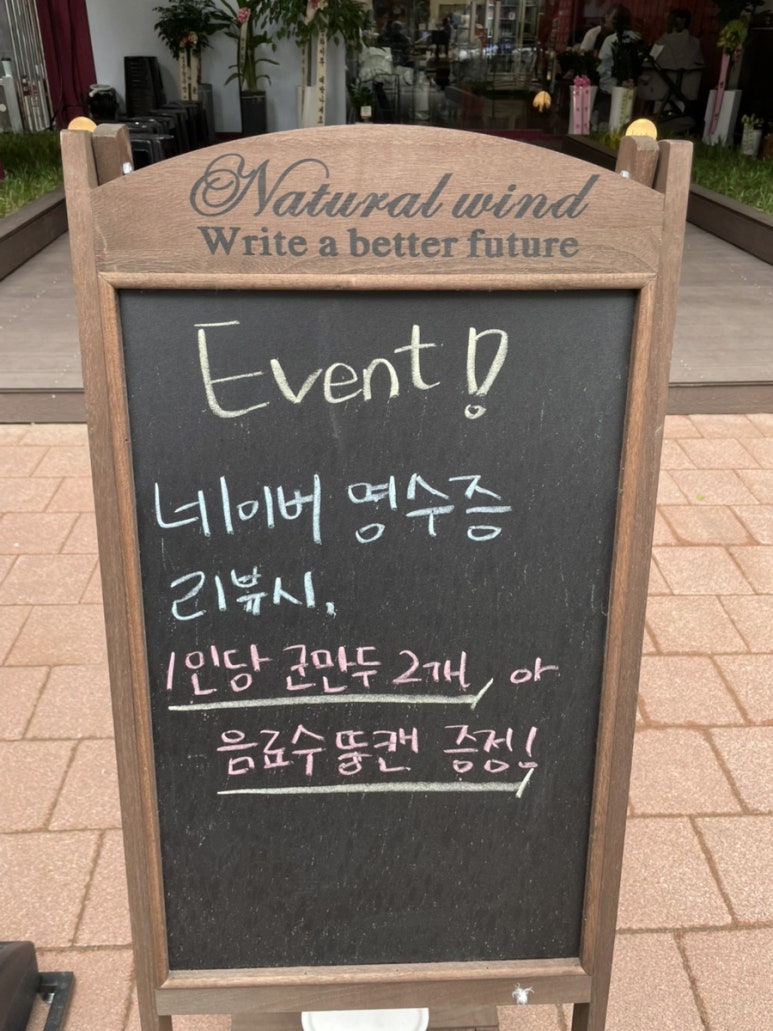 Natural wind
Write a better future
Event!
네이버 영수증
리뷰시,
1인당 군만두 2개, 아
음료수 뚱캔 증정!